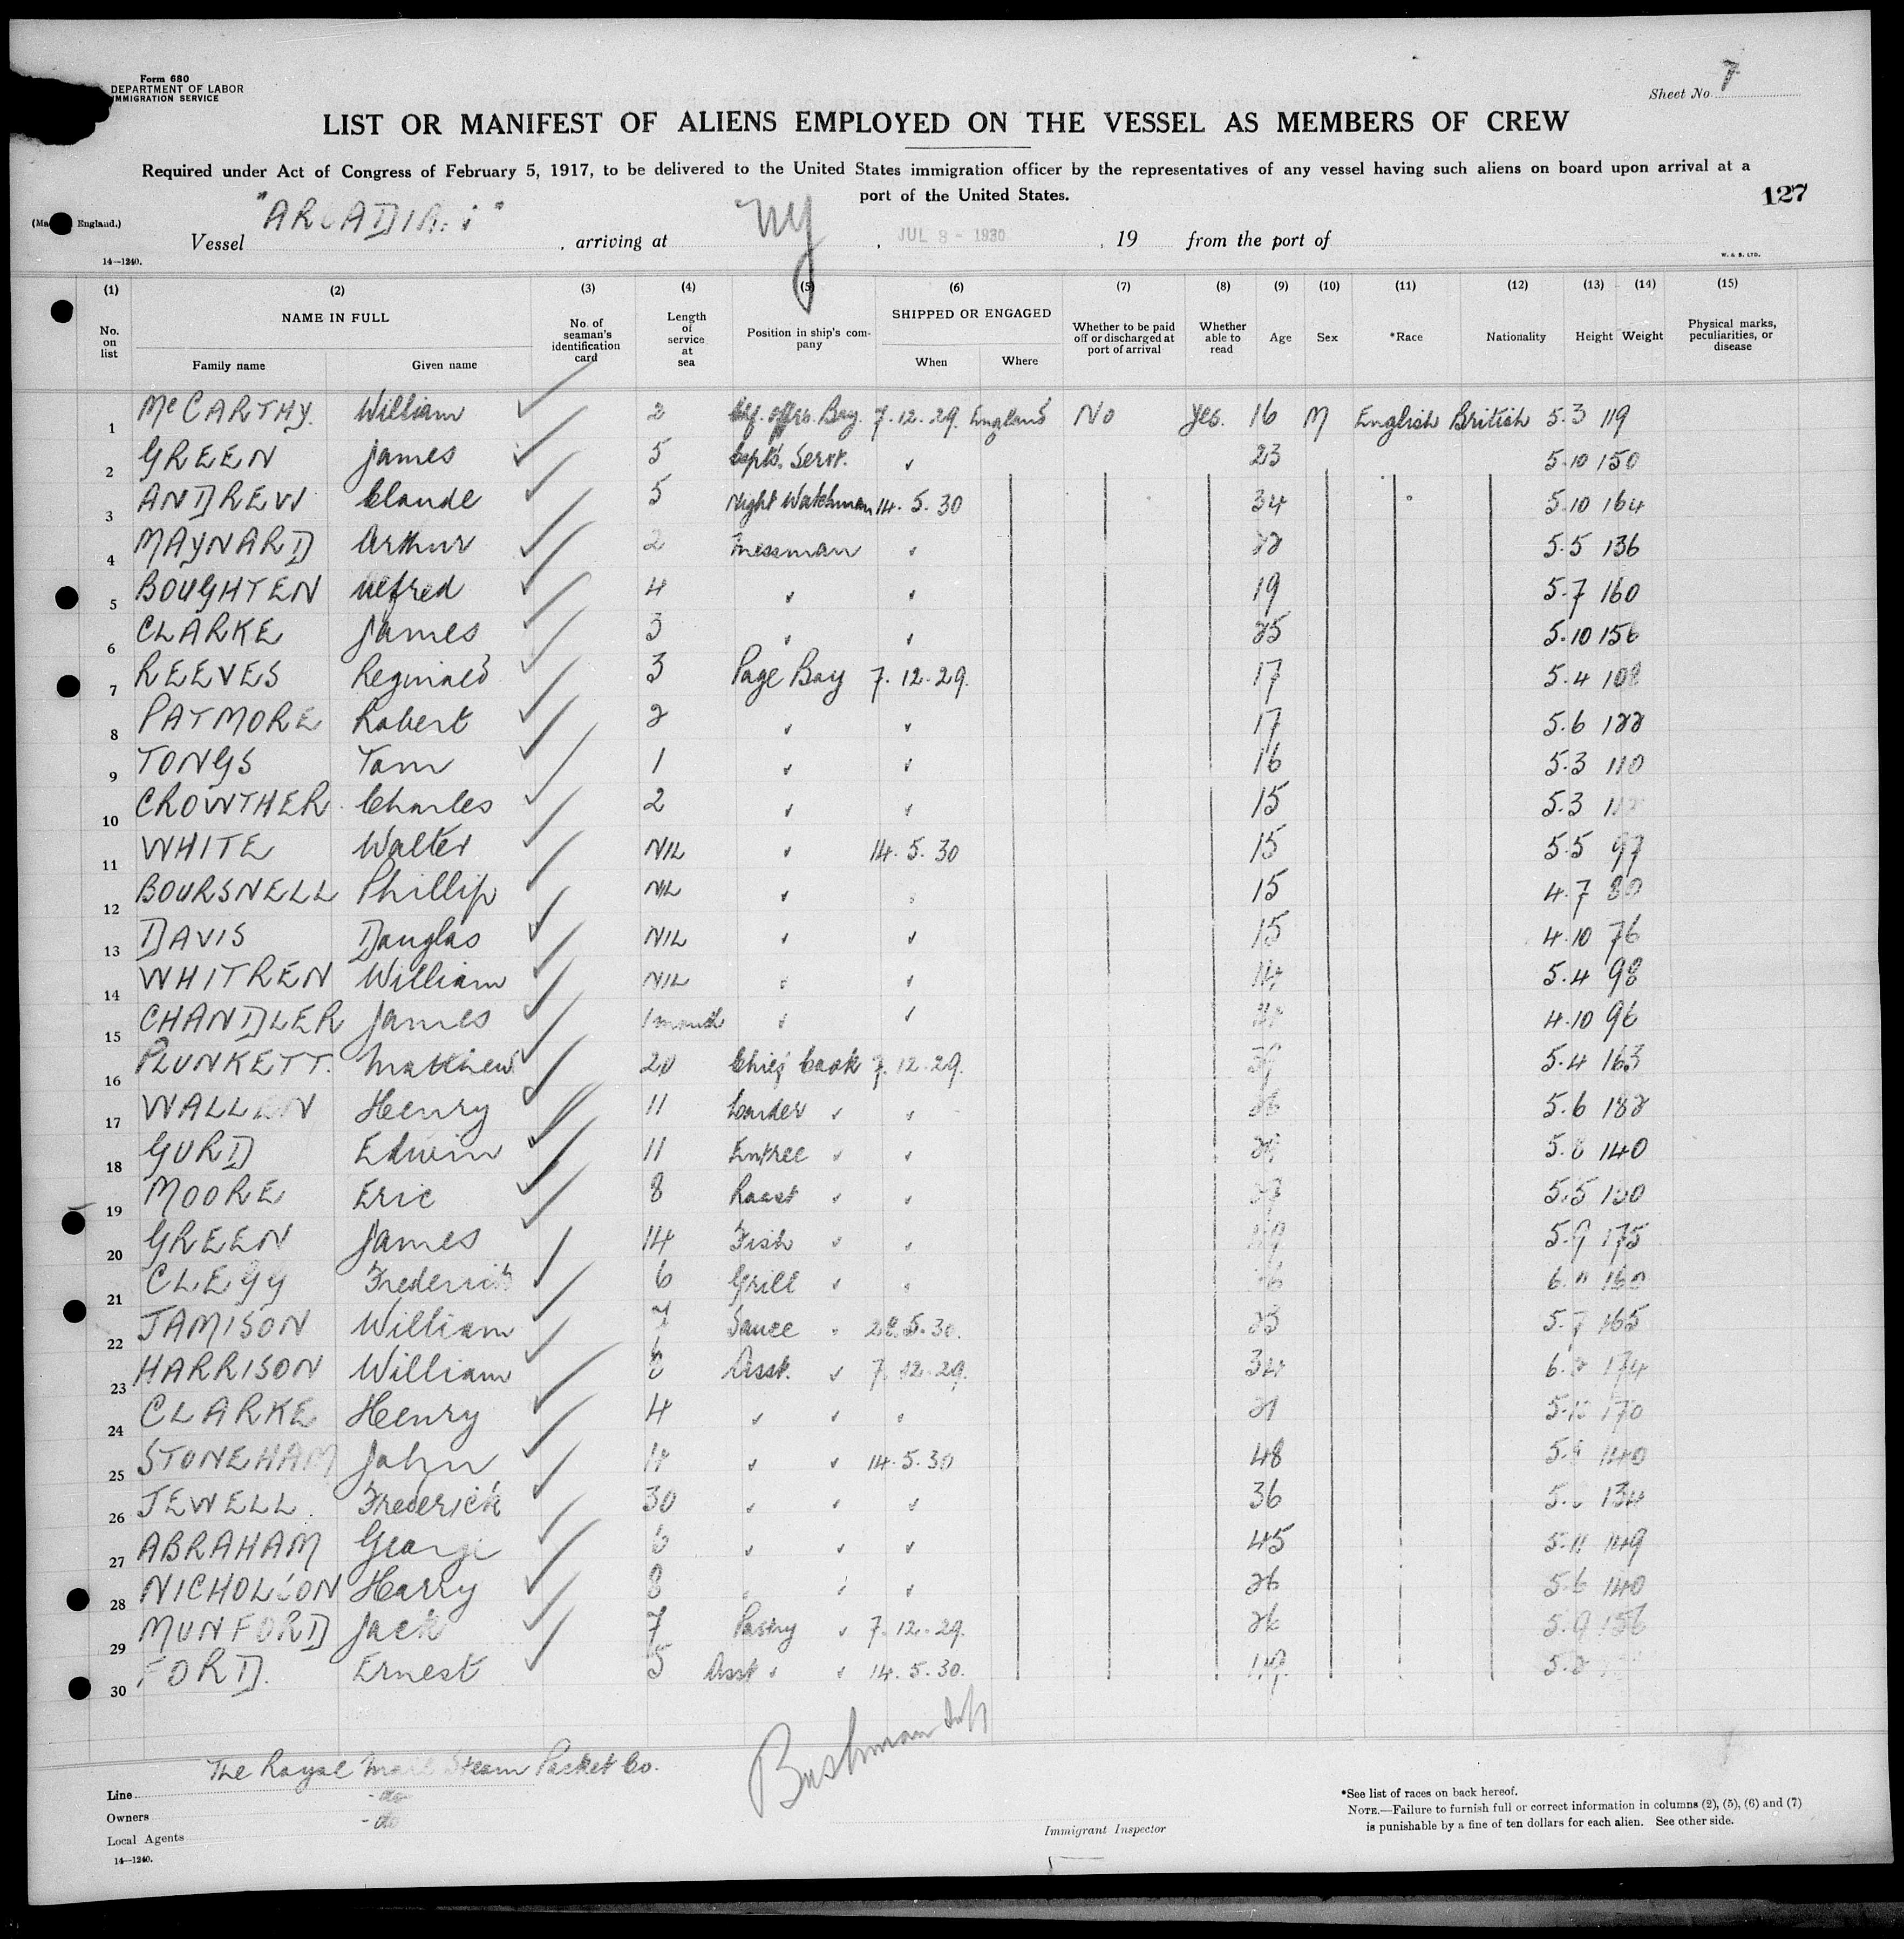 Form 680
DEPARTMENT OF LABOR
IMMIGRATION SERVICE
Sheet No 7
LIST OR MANIFEST OF ALIENS EMPLOYED ON THE VESSEL AS MEMBERS OF CREW
Required under Act of Congress of February 5, 1917, to be delivered to the United States immigration officer by the representatives of any vessel having such aliens on board upon arrival at a
port of the United States.
127
England.)
Vessel , arriving at NY , JUL 8 - 1930 , 19 from the port of
14—1240.
W. & S. LTD.
(1) (2) (3) (4) (5) (6) (7) (8) (9) (10) (11) (12) (13) (14) (15)
No. on list NAME IN FULL Family name Given name No. of seaman's identification card Length of service at sea Position in ship's company SHIPPED OR ENGAGED When Where Whether to be paid off or discharged at port of arrival Whether able to read Age Sex *Race Nationality Height Weight Physical marks, peculiarities, or disease
1 McCARTHY. William ✓ 2 Boy 7.12.29. England No Yes. 16 M English British 5.3 119
2 GREEN James ✓ 5 Capts. Servt. ✓ 23 5.10 150
3 ANDREW Claude ✓ 5 Night Watchman 14.5.30 34 5.10 164
4 MAYNARD Arthur ✓ 2 Messman ✓ 22 5.5 136
5 BOUGHTEN Alfred ✓ 4 ✓ ✓ 19 5.7 160
6 CLARKE James ✓ 3 ✓ ✓ 25 5.10 156
7 REEVES Reginald ✓ 3 Page Boy 7.12.29. 17 5.4 108
8 PATMORE Robert ✓ 2 ✓ ✓ 17 5.6 122
9 TONGS Tom ✓ 1 ✓ ✓ 16 5.3 110
10 CROWTHER Charles ✓ 2 ✓ ✓ 15 5.3
11 WHITE Walter ✓ NIL ✓ 14.5.30 15 5.5 97
12 BOURSNELL Phillip ✓ NIL ✓ ✓ 15 4.7 80
13 DAVIS Douglas ✓ NIL ✓ ✓ 15 4.10 76
14 WHITREN William ✓ NIL ✓ ✓ 14 5.4 98
15 CHANDLER James ✓ 1 month ✓ ✓ 4.10 96
16 PLUNKETT. Matthew ✓ 20 Chief Cook 7.12.29. 5.4 163
17 WALLEN Henry ✓ 11 Larder ✓ ✓ 5.6 182
18 GURD Edwin ✓ 11 Entree ✓ ✓ 5.8 140
19 MOORE Eric ✓ 8 Roast ✓ ✓ 5.5
20 GREEN James ✓ 14 Fish ✓ ✓ 5.9 175
21 CLEGG Frederick ✓ 6 Grill ✓ ✓ 6.0 160
22 JAMISON William ✓ 7 Sauce ✓ 28.5.30. 23 5.7 165
23 HARRISON William ✓ Asst. ✓ 7.12.29. 34 174
24 CLARKE Henry ✓ 4 ✓ ✓ ✓ 21 170
25 STONEHAM John ✓ ✓ ✓ 14.5.30 48 5.8 140
26 JEWELL Frederick ✓ 30 ✓ ✓ ✓ 36 134
27 ABRAHAM George ✓ 6 ✓ ✓ ✓ 45 5.11 149
28 NICHOLSON Harry ✓ 8 ✓ ✓ ✓ 26 5.6 140
29 MUNFORD Jack ✓ 7 Pastry ✓ 7.12.29. 26 5.9 156
30 FORD. Ernest ✓ 5 Asst ✓ ✓ 14.5.30. 19.
Line The Royal Mail Steam Packet Co.
Owners - do
Local Agents - do
14—1240.
Bushman
Immigrant Inspector
*See list of races on back hereof.
NOTE.—Failure to furnish full or correct information in columns (2), (5), (6) and (7)
is punishable by a fine of ten dollars for each alien. See other side.